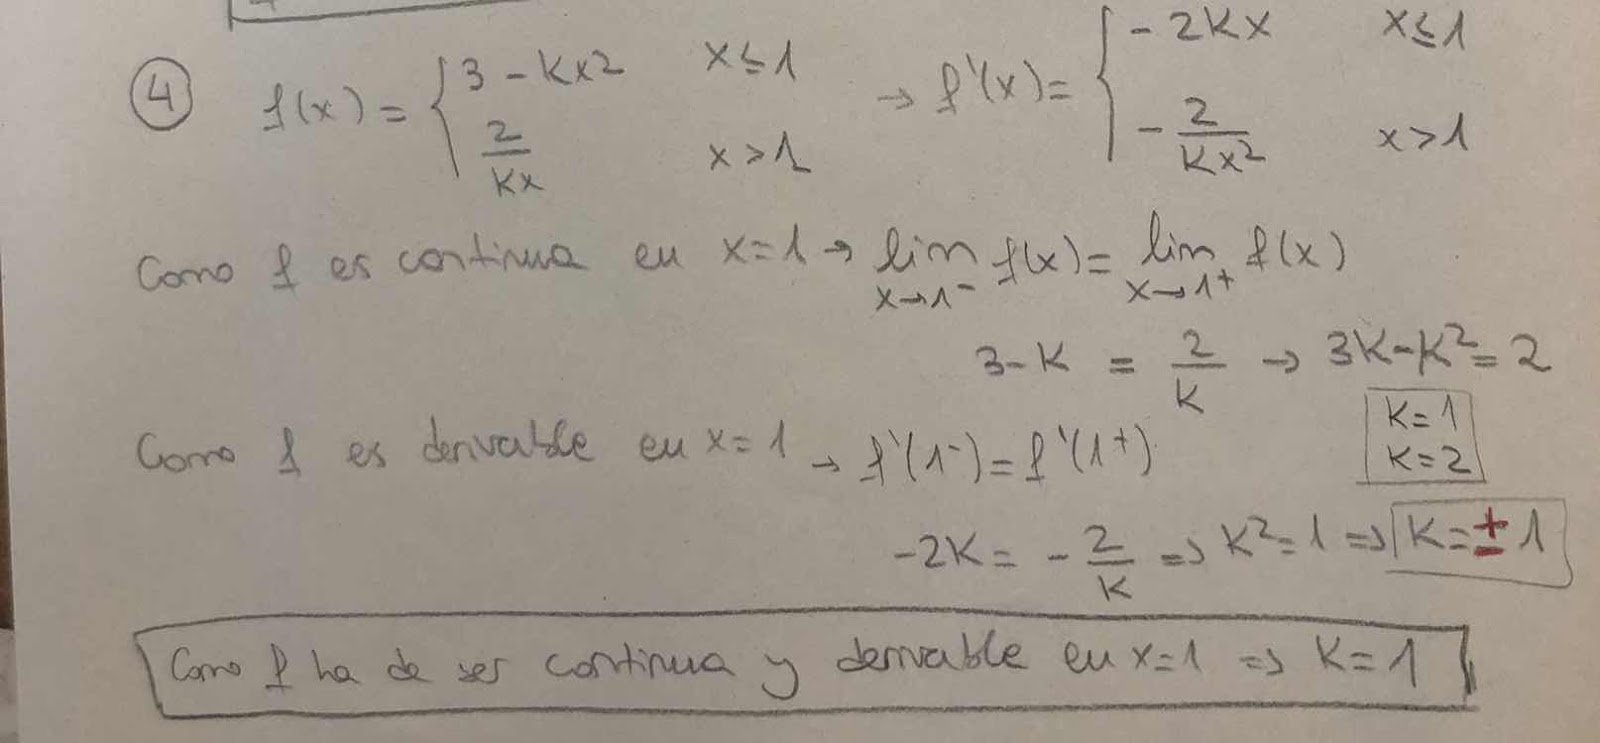 4 f(x) = { 3 - Kx² x ≤ 1 → f'(x) = { - 2Kx x ≤ 1
2/Kx x > 1 - 2/Kx² x > 1
Como f es continua en x = 1 → lim x→1⁻ f(x) = lim x→1⁺ f(x)
3 - K = 2/K → 3K - K² = 2
K = 1
K = 2
Como f es derivable en x = 1 → f'(1⁻) = f'(1⁺)
-2K = - 2/K ⇒ K² = 1 ⇒ K = ± 1
Como f ha de ser continua y derivable en x = 1 ⇒ K = 1